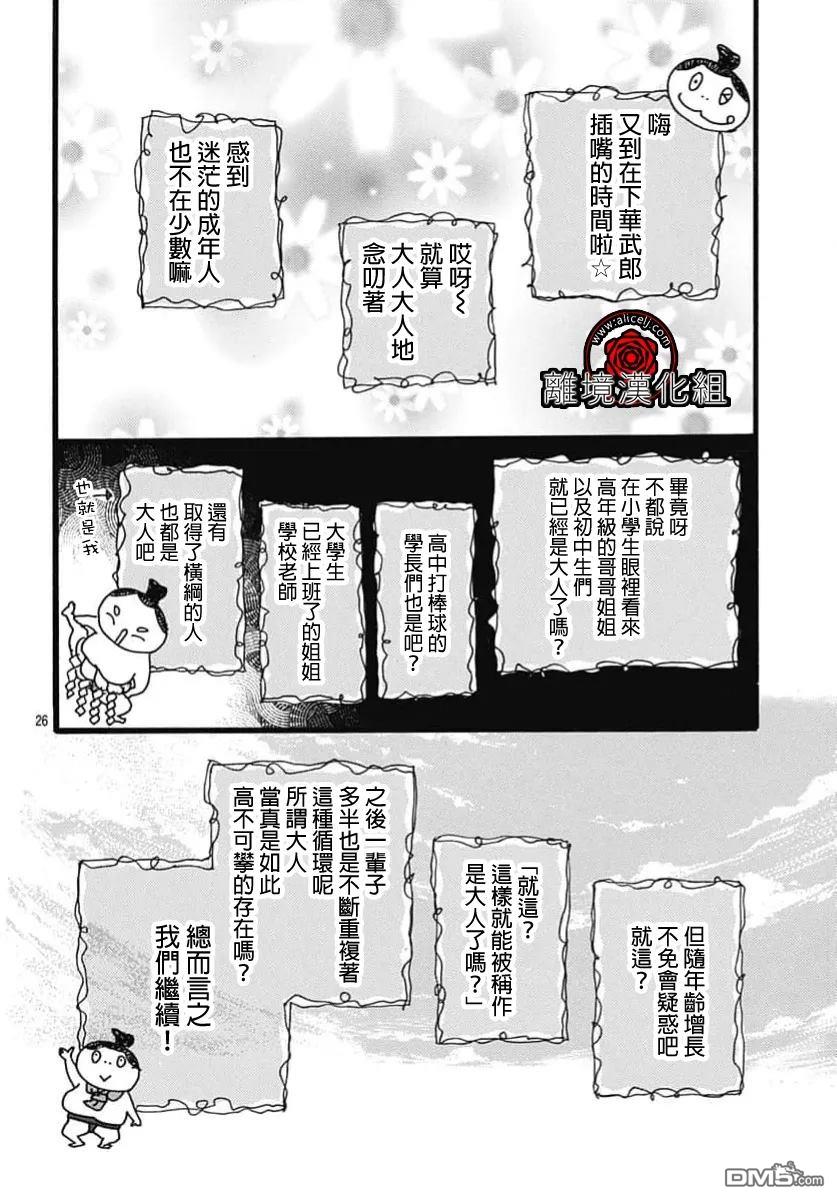 嗨
又到在下華武郎
插嘴的時間啦☆
哎呀～
就算
大人大人地
念叨著
感到
迷茫的成年人
也不在少數嘛
www.alicelj.com
離境漢化組
畢竟呀
不都說
在小學生眼裡看來
高年級的哥哥姐姐
以及初中生們
就已經是大人了嗎？
高中打棒球的
學長們也是吧？
大學生
已經上班了的姐姐
學校老師
還有
取得了橫綱的人
也都是
大人吧
也就是我
26
但隨年齡增長
不免會疑惑吧
就這？
「就這？
這樣就能被稱作
是大人了嗎？」
之後一輩子
多半也是不斷重複著
這種循環呢
所謂大人
當真是如此
高不可攀的存在嗎？
總而言之
我們繼續！
DM5.com